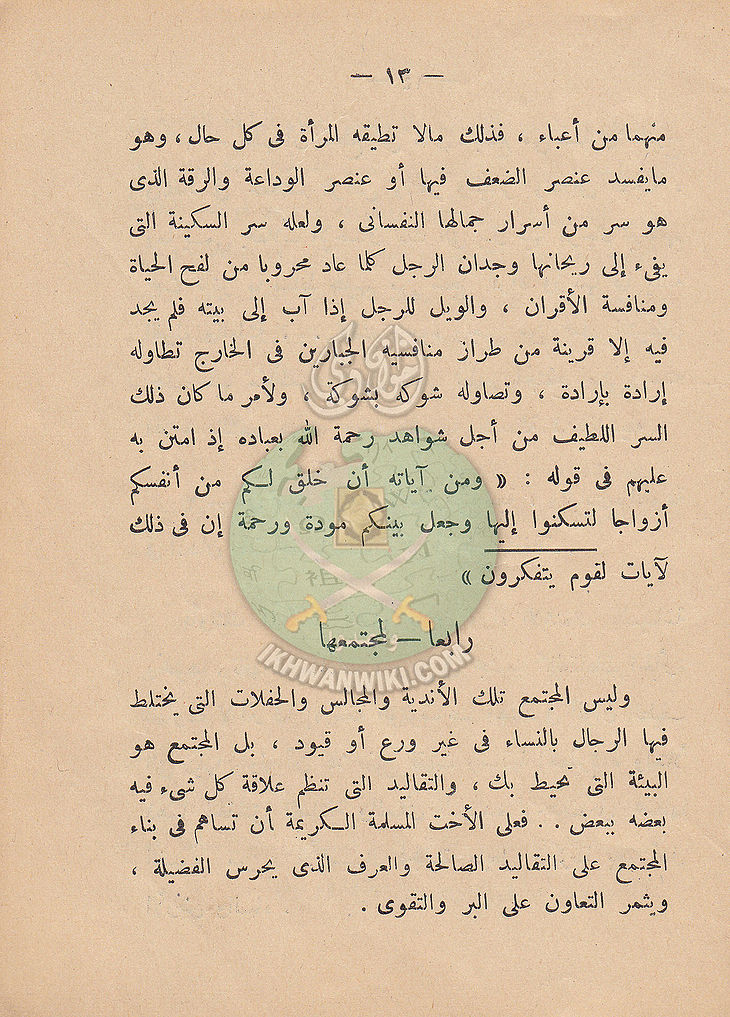 — ١٣ —
منهما من أعباء ، فذلك مالا تطيقه المرأة فى كل حال ، وهو
مايفسد عنصر الضعف فيها أو عنصر الوداعة والرقة الذى
هو سر من أسرار جمالها النفسانى ، ولعله سر السكينة التى
يفىء إلى ريحانها وجدان الرجل كلما عاد محروبا من لفح الحياة
ومنافسة الأقران ، والويل للرجل إذا آب إلى بيته فلم يجد
فيه إلا قرينة من طراز منافسيه الجبارين فى الخارج تطاوله
إرادة بإرادة ، وتصاوله شوكة بشوكة ، ولأمر ما كان ذلك
السر اللطيف من أجل شواهد رحمة الله بعباده إذ امتن به
عليهم فى قوله : « ومن آياته أن خلق لكم من أنفسكم
أزواجا لتسكنوا إليها وجعل بينكم مودة ورحمة إن فى ذلك
لآيات لقوم يتفكرون »
رابعا — لمجتمعها
وليس المجتمع تلك الأندية والمجالس والحفلات التى يختلط
فيها الرجال بالنساء فى غير ورع أو قيود ، بل المجتمع هو
البيئة التى تحيط بك ، والتقاليد التى تنظم علاقة كل شىء فيه
بعضه ببعض . . فعلى الأخت المسلمة الكريمة أن تساهم فى بناء
المجتمع على التقاليد الصالحة والعرف الذى يحرس الفضيلة ،
ويثمر التعاون على البر والتقوى .
IKHWANWIKI.COM